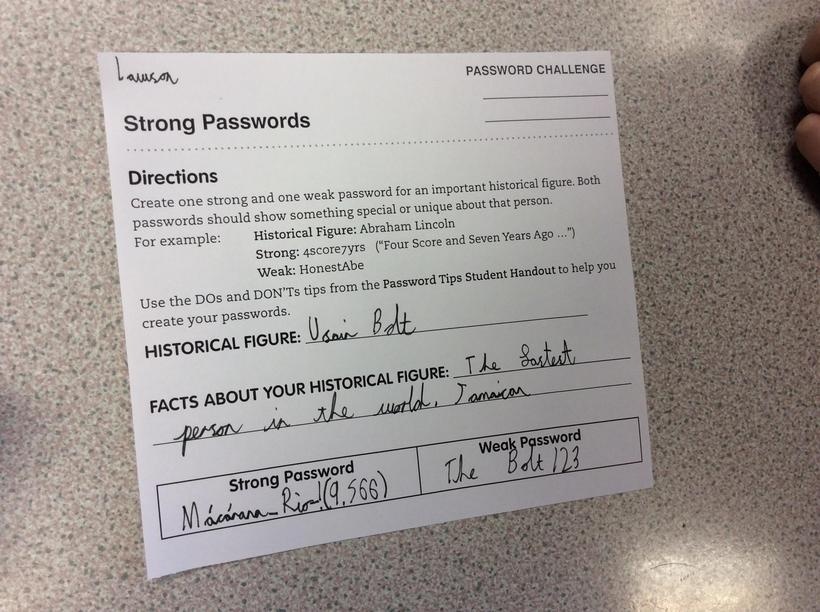 Lawson
PASSWORD CHALLENGE
Strong Passwords
Directions
Create one strong and one weak password for an important historical figure. Both
passwords should show something special or unique about that person.
For example: Historical Figure: Abraham Lincoln
Strong: 4score7yrs ("Four Score and Seven Years Ago ...")
Weak: HonestAbe
Use the DOs and DON'Ts tips from the Password Tips Student Handout to help you
create your passwords.
HISTORICAL FIGURE: Usain Bolt
FACTS ABOUT YOUR HISTORICAL FIGURE: The fastest
person in the world, Jamaican
Strong Password
Mácárana_Rio!(9.566)
Weak Password
The Bolt 123